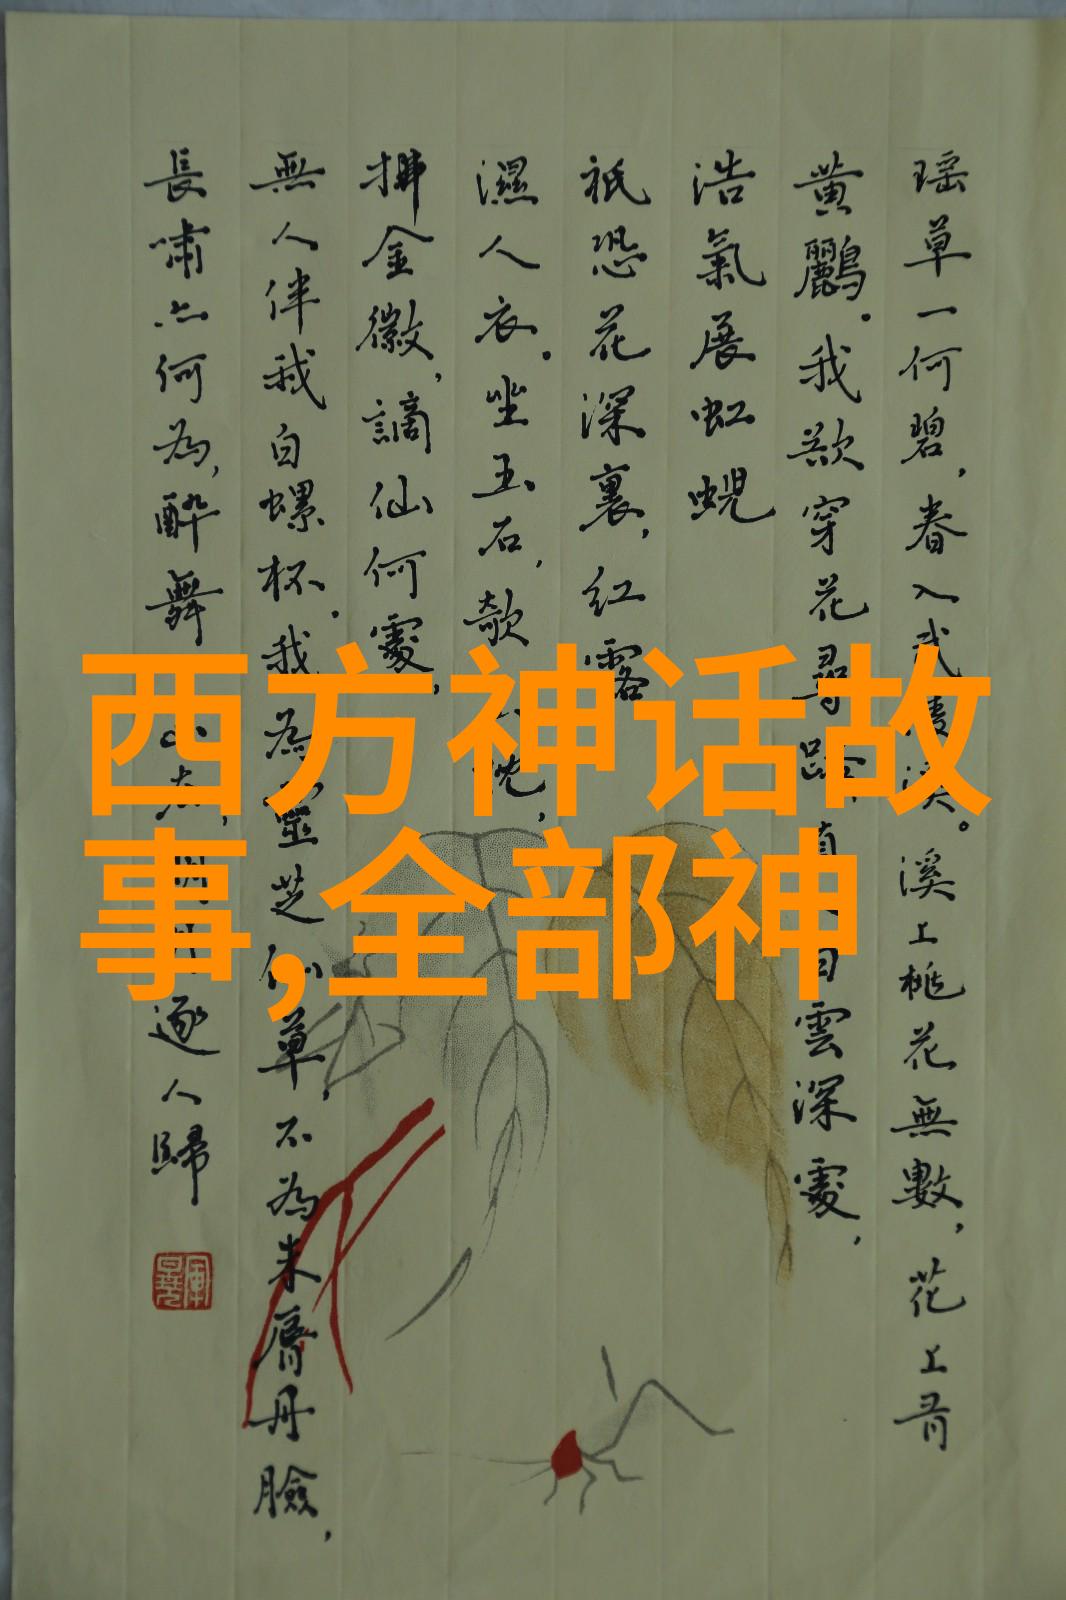 西方神话故
事,全部神
瑶草一何碧，春入武陵溪。溪上桃花無數，花上有
黄鸝。我欲穿花尋路，白雲深處，
浩氣展虹蜺
祇恐花深裏，紅露
濕人衣。坐玉石，欹枕，
拂金徽，謫仙何處，
無人伴我白螺杯。我為靈芝仙草，不為朱脣丹臉，
長嘯亦何為，醉舞下山去，明月逐人歸